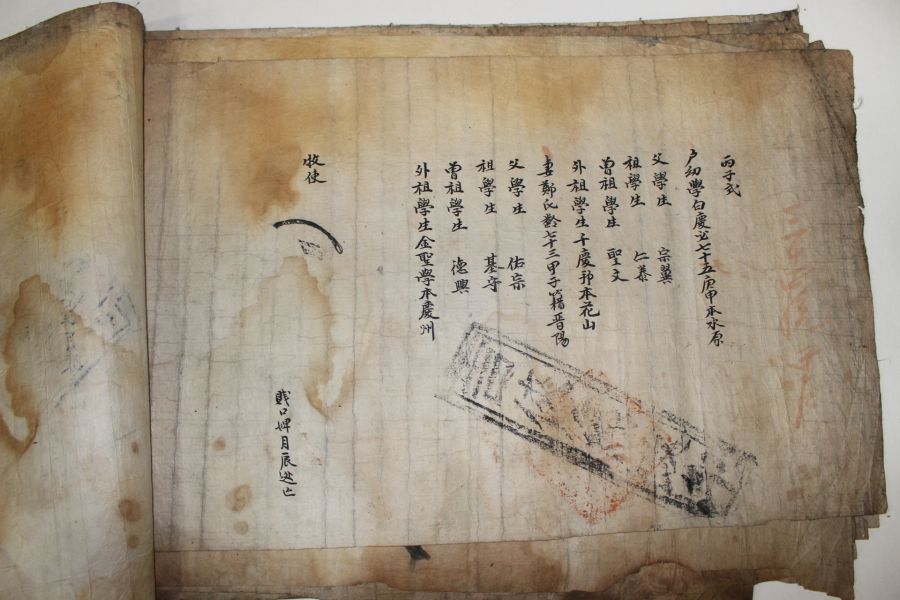 丙子式
戶幼學白慶 七十五庚甲本水原
父學生 宗翼
祖學生 仁泰
曾祖學生 聖文
外祖學生千慶 本花山
妻鄭氏齡七十三甲子籍晋陽
父學生 佑宗
祖學生 基守
曾祖學生 德興
外祖學生金聖學本慶州
牧使
賎口婢月辰逃亡